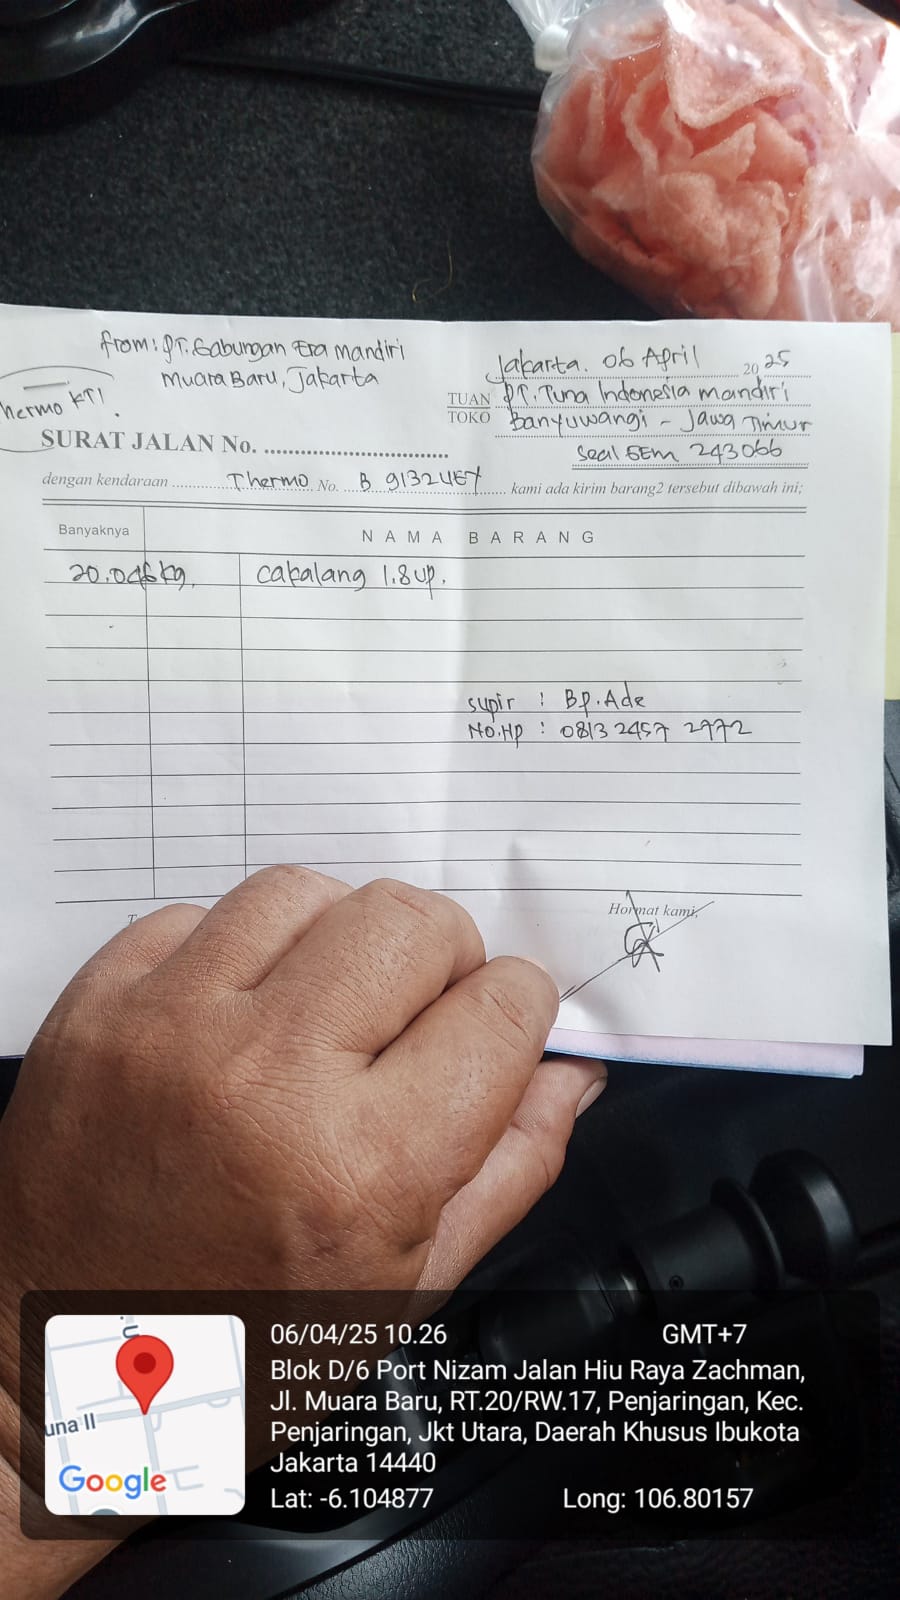 from: PT. Gabungan Era Mandiri
Muara Baru, Jakarta
Thermo KTI.
Jakarta. 06 April 2025
TUAN
TOKO
PT. Tuna Indonesia mandiri
Banyuwangi - Jawa Timur
Seal SEM 243066
SURAT JALAN No.
dengan kendaraan Thermo No. B 9132 kami ada kirim barang2 tersebut dibawah ini;
Banyaknya NAMA BARANG
20.046 kg. cakalang 1.8 up.
supir : Bp. Ade
No. Hp : 0813 2457 2772
Hormat kami,
una II
Google
06/04/25 10.26 GMT+7
Blok D/6 Port Nizam Jalan Hiu Raya Zachman,
Jl. Muara Baru, RT.20/RW.17, Penjaringan, Kec.
Penjaringan, Jkt Utara, Daerah Khusus Ibukota
Jakarta 14440
Lat: -6.104877 Long: 106.80157